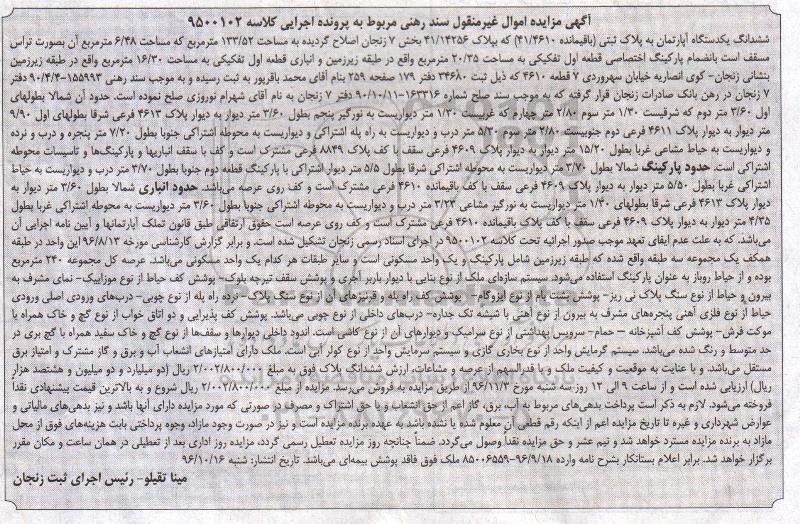 آگهی مزایده اموال غیرمنقول سند رهنی مربوط به پرونده اجرایی کلاسه ۹۵۰۰۱۰۲
ششدانگ یکدستگاه آپارتمان به پلاک ثبتی (باقیمانده ۴۱/۴۶۱۰) که بپلاک ۴۱/۱۴۲۵۶ بخش ۷ زنجان اصلاح گردیده به مساحت ۱۳۳/۵۲ مترمربع که مساحت ۶/۴۸ مترمربع آن بصورت تراس
مسقف است بانضمام پارکینگ اختصاصی قطعه اول تفکیکی به مساحت ۲۰/۳۵ مترمربع واقع در طبقه زیرزمین و انباری قطعه اول تفکیکی به مساحت ۱۶/۳۰ مترمربع واقع در طبقه زیرزمین
بنشانی زنجان- کوی انصاریه خیابان سهروردی ۷ قطعه ۴۶۱۰ که ذیل ثبت ۳۴۶۸۰ دفتر ۱۷۹ صفحه ۲۵۹ بنام آقای محمد باقرپور به ثبت رسیده و به موجب سند رهنی ۱۵۵۹۹۳-۹۰/۴/۴ دفتر
۷ زنجان در رهن بانک صادرات زنجان قرار گرفته که به موجب سند صلح شماره ۱۶۳۳۱۶-۹۰/۱۰/۱۱ دفتر ۷ زنجان به نام آقای شهرام نوروزی صلح نموده است. حدود آن شمالا بطولهای
اول ۳/۶۰ متر دوم که شرقیست ۱/۳۰ متر سوم ۲/۸۰ متر چهارم که غربیست ۱/۳۰ متر دیواریست به نورگیر پنجم بطول ۳/۶۰ متر دیوار به دیوار پلاک ۴۶۱۳ فرعی شرقا بطولهای اول ۹/۹۰
متر دیوار به دیوار پلاک ۴۶۱۱ فرعی دوم جنوبیست ۲/۸۰ متر سوم ۵/۲۰ متر درب و دیواریست به راه پله اشتراکی و دیواریست به محوطه اشتراکی جنوبا بطول ۷/۲۰ متر پنجره و درب و نرده
و دیواریست به حیاط مشاعی غربا بطول ۱۵/۲۰ متر دیوار به دیوار پلاک ۴۶۰۹ فرعی سقف با کف پلاک ۸۸۴۹ فرعی مشترک است و کف با سقف انباریها و پارکینگ‌ها و تاسیسات محوطه
اشتراکی است. حدود پارکینگ شمالا بطول ۳/۷۰ متر دیواریست به محوطه اشتراکی شرقا بطول ۵/۵ متر دیوار اشتراکی با پارکینگ قطعه دوم جنوبا بطول ۳/۷۰ متر درب و دیواریست به حیاط
اشتراکی غربا بطول ۵/۵۰ متر دیوار به دیوار پلاک ۴۶۰۹ فرعی سقف با کف باقیمانده ۴۶۱۰ فرعی مشترک است و کف روی عرصه می‌باشد. حدود انباری شمالا بطول ۳/۶۰ متر دیوار به
دیوار پلاک ۴۶۱۳ فرعی شرقا بطولهای ۱/۴۰ متر دیواریست به نورگیر مشاعی ۳/۲۳ متر درب و دیواریست به محوطه اشتراکی جنوبا بطول ۳/۶۰ متر دیواریست به محوطه اشتراکی غربا بطول
۴/۳۵ متر دیوار به دیوار پلاک ۴۶۰۹ فرعی سقف با کف پلاک باقیمانده ۴۶۱۰ فرعی مشترک است و کف روی عرصه است حقوق ارتفاقی طبق قانون تملک آپارتمانها و آیین نامه اجرایی آن
می‌باشد. که به علت عدم ایفای تعهد موجب صدور اجرائیه تحت کلاسه ۹۵۰۰۱۰۲ در اجرای اسناد رسمی زنجان تشکیل شده است. و برابر گزارش کارشناسی مورخه ۹۶/۸/۱۳ این واحد در طبقه
همکف یک مجموعه سه طبقه واقع شده که طبقه زیرزمین شامل پارکینگ و یک واحد مسکونی است و سایر طبقات هر کدام یک واحد مسکونی می‌باشد. عرصه کل مجموعه ۲۴۰ مترمربع
بوده و از حیاط روباز به عنوان پارکینگ استفاده می‌شود. سیستم سازه‌ای ملک از نوع بنایی با دیوار باربر آجری و پوشش سقف تیرچه بلوک- پوشش کف حیاط از نوع موزاییک- نمای مشرف به
بیرون و حیاط از نوع سنگ پلاک نی ریز- پوشش پشت بام از نوع ایزوگام- پوشش کف راه پله و قرنیزهای آن از نوع سنگ پلاک- نرده راه پله از نوع چوبی- درب‌های ورودی اصلی ورودی
حیاط از نوع فلزی آهنی پنجره‌های مشرف به بیرون از نوع آهنی با شیشه تک جداره- درب‌های داخلی از نوع چوبی می‌باشد. پوشش کف پذیرایی و دو اتاق خواب از نوع گچ و خاک همراه با
موکت فرش- پوشش کف آشپزخانه – حمام- سرویس بهداشتی از نوع سرامیک و دیوارهای آن از نوع کاشی است. اندود داخلی دیوارها و سقف‌ها از نوع گچ و خاک سفید همراه با گچ بری در
حد متوسط و رنگ شده می‌باشد. سیستم گرمایش واحد از نوع بخاری گازی و سیستم سرمایش واحد از نوع کولر آبی است. ملک دارای امتیازهای انشعاب آب و برق و گاز مشترک و امتیاز برق
مستقل می‌باشد. و با عنایت به موقعیت و کیفیت ملک و با قدرالسهم از عرصه و مشاعات، ارزش ششدانگ پلاک فوق به مبلغ ۲/۰۰۲/۸۰۰/۰۰۰ ریال (دو میلیارد و دو میلیون و هشتصد هزار
ریال) ارزیابی شده است و از ساعت ۹ الی ۱۲ روز سه شنبه مورخ ۹۶/۱۱/۳ از طریق مزایده به فروش می‌رسد. مزایده از مبلغ ۲/۰۰۲/۸۰۰/۰۰۰ ریال شروع و به بالاترین قیمت پیشنهادی نقداً
فروخته می‌شود. لازم به ذکر است پرداخت بدهی‌های مربوط به آب، برق، گاز اعم از حق انشعاب و یا حق اشتراک و مصرف در صورتی که مورد مزایده دارای آنها باشد و نیز بدهی‌های مالیاتی و
عوارض شهرداری و غیره تا تاریخ مزایده اعم از اینکه رقم قطعی آن معلوم شده یا نشده باشد به عهده برنده مزایده است و نیز در صورت وجود مازاد، وجوه پرداختی بابت هزینه‌های فوق از محل
مازاد به برنده مزایده مسترد خواهد شد و نیم عشر و حق مزایده نقداً وصول می‌گردد. ضمناً چنانچه روز مزایده تعطیل رسمی گردد، مزایده روز اداری بعد از تعطیلی در همان ساعت و مکان مقرر
برگزار خواهد شد. برابر اعلام بستانکار بشرح نامه وارده ۹۶/۹/۱۸-۸۵۰۰۶۵۵۹ ملک فوق فاقد پوشش بیمه‌ای می‌باشد. تاریخ انتشار: شنبه ۹۶/۱۰/۱۶
مینا تقیلو- رئیس اجرای ثبت زنجان